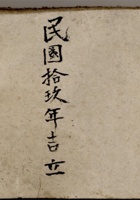 民國拾玖年吉立